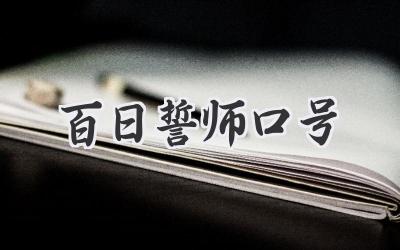 百日誓师口号